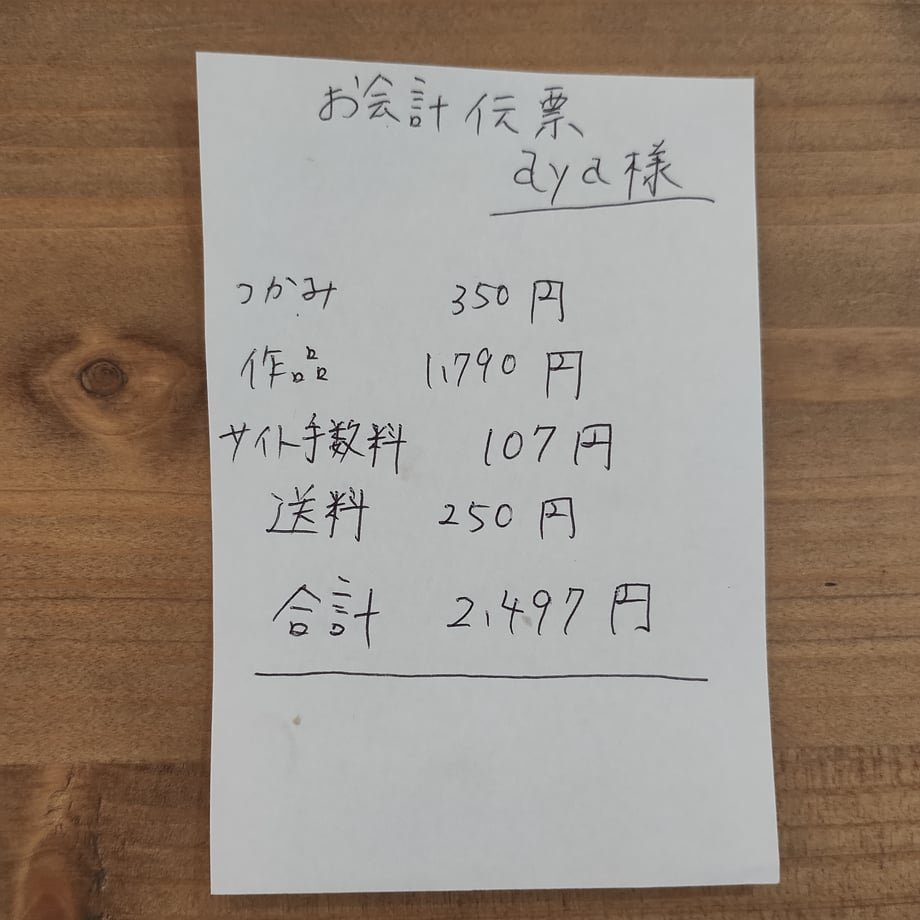 お会計伝票
aya様
つかみ 350円
作品 1,790円
サイト手数料 107円
送料 250円
合計 2,497円